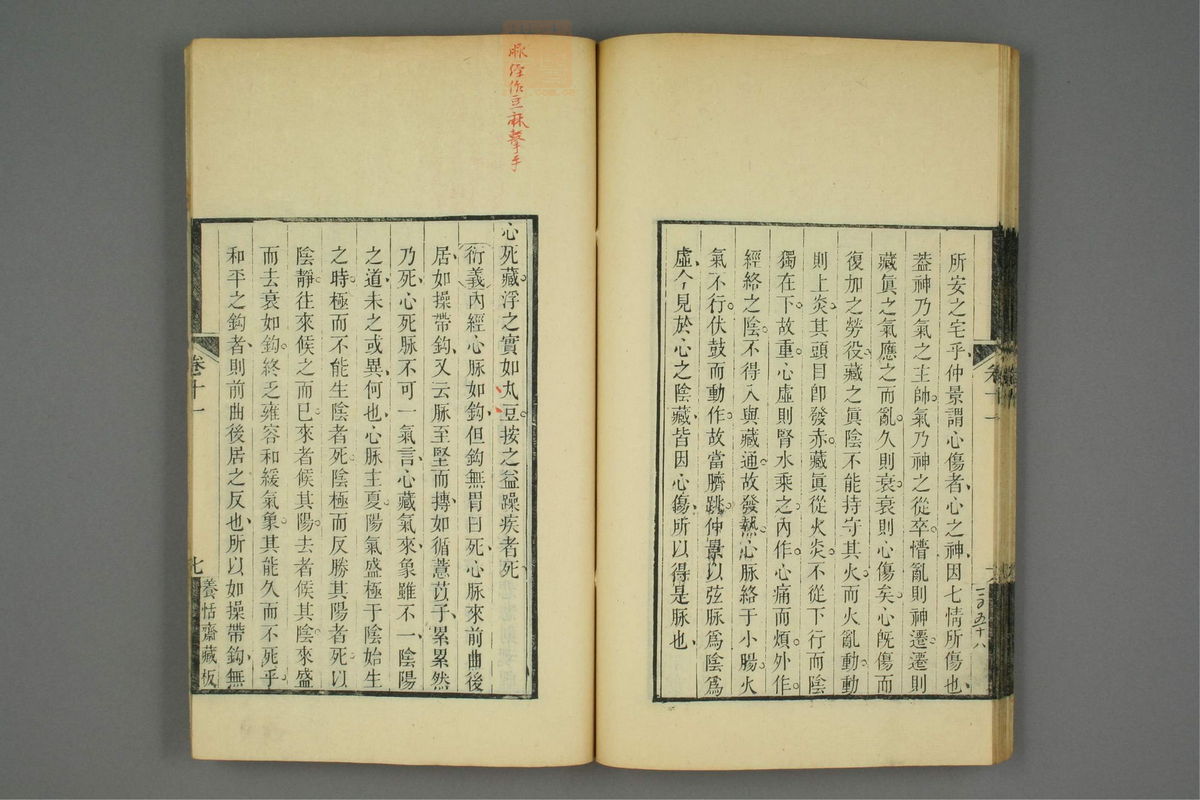 所安之宅乎仲景謂心傷者心之神因七情所傷也
葢神乃氣之主帥氣乃神之從卒懵亂則神遷遷則
藏眞之氣應之而亂久則衰衰則心傷矣心旣傷而
復加之勞役藏之眞陰不能持守其火而火亂動動
則上炎其頭目卽發赤藏眞從火炎不從下行而陰
獨在下故重心虛則腎水乘之內作心痛而煩外作
經絡之陰不得入與藏通故發熱心脈絡于小腸火
氣不行伏鼓而動作故當臍跳仲景以弦脈爲陰爲
虛今見於心之陰藏皆因心傷所以得是脈也
卷十一
三百五十八
脉經作豆麻擊手
心死藏浮之實如丸豆按之益躁疾者死
衍義內經心脈如鈎但鈎無胃曰死心脈來前曲後
居如操帶鈎又云脈至堅而摶如循薏苡子累累然
乃死心死脈不可一氣言心藏氣來象雖不一陰陽
之道未之或異何也心脈主夏陽氣盛極于陰始生
之時極而不能生陰者死陰極而反勝其陽者死以
陰靜往來候之而已來者候其陽去者候其陰來盛
而去衰如鈎終乏雍容和緩氣象其能久而不死乎
和平之鈎者則前曲後居之反也所以如操帶鈎無
卷十一
七
養恬齋藏板